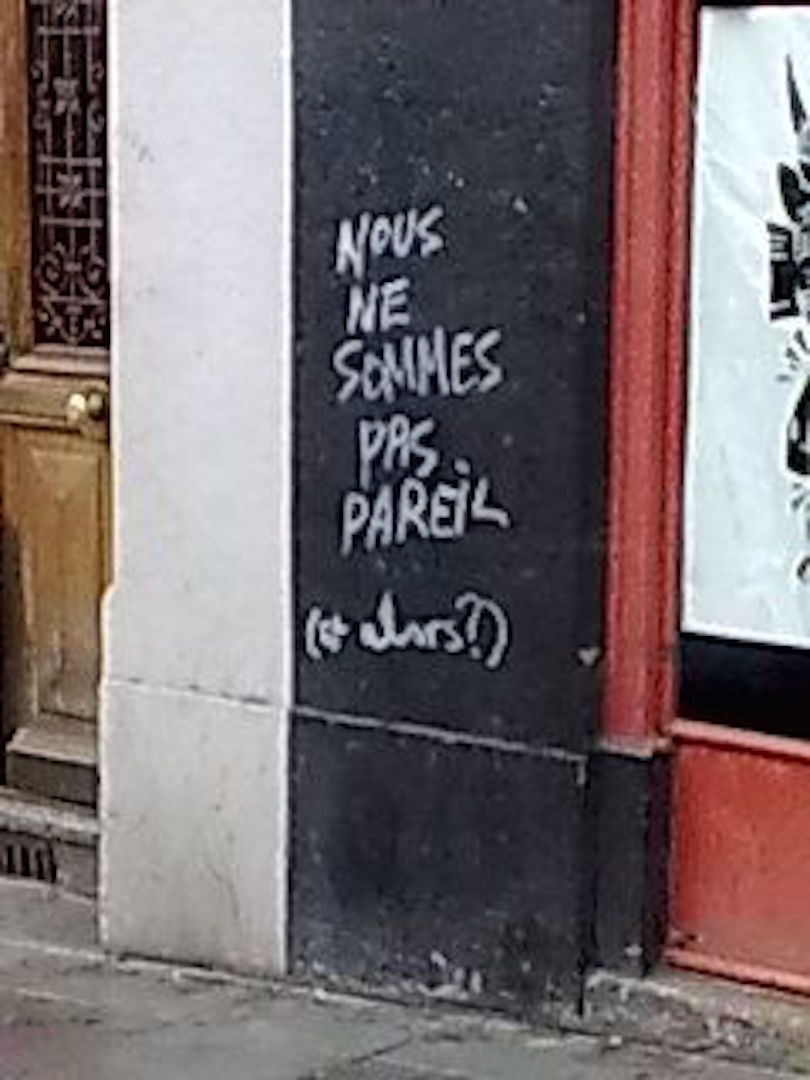 NOUS
NE
SOMMES
PAS
PAREiL
(et alors?)